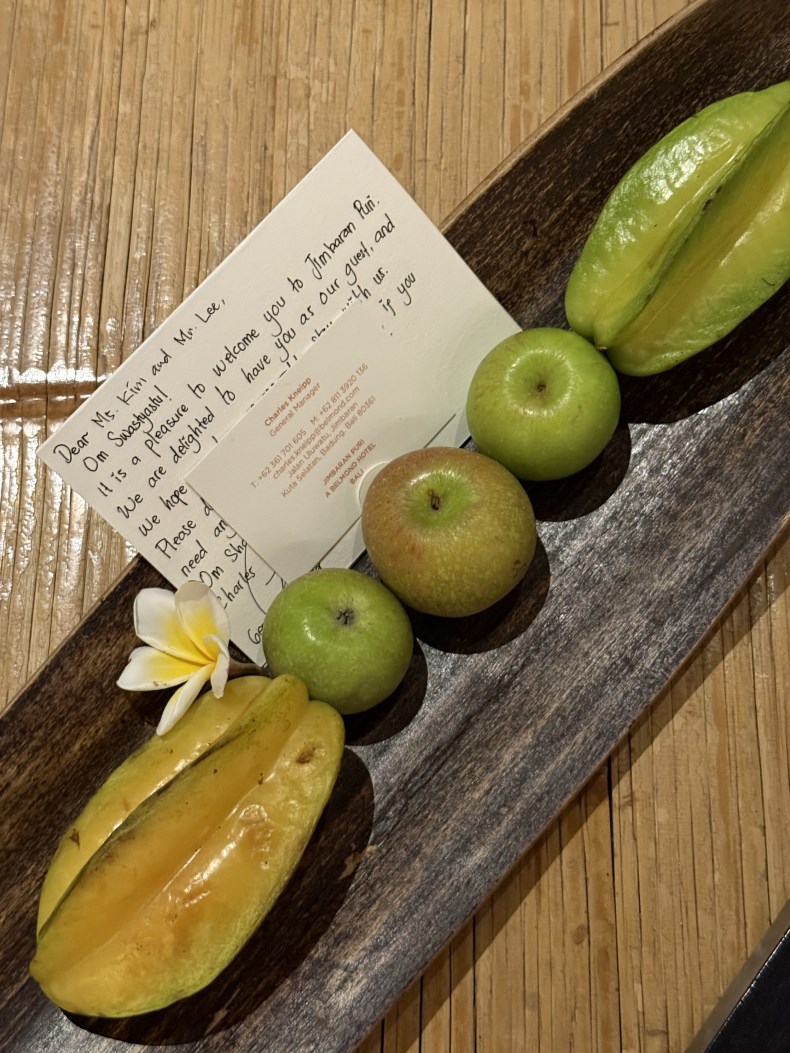 Dear Ms. Kim and Mr. Lee,
Om Swastyastu!
It is a pleasure to welcome you to Jimbaran Puri.
We are delighted to have you as our guest, and
We hope with us.
Please if you
need
Om
Charles
Charles Kneipp
General Manager
T: +62 361 701 605 M: +62 811 3920 136
charles.kneipp@belmond.com
Jalan Uluwatu, Jimbaran
Kuta Selatan, Badung, Bali 80361
JIMBARAN PURI
A BELMOND HOTEL
BALI